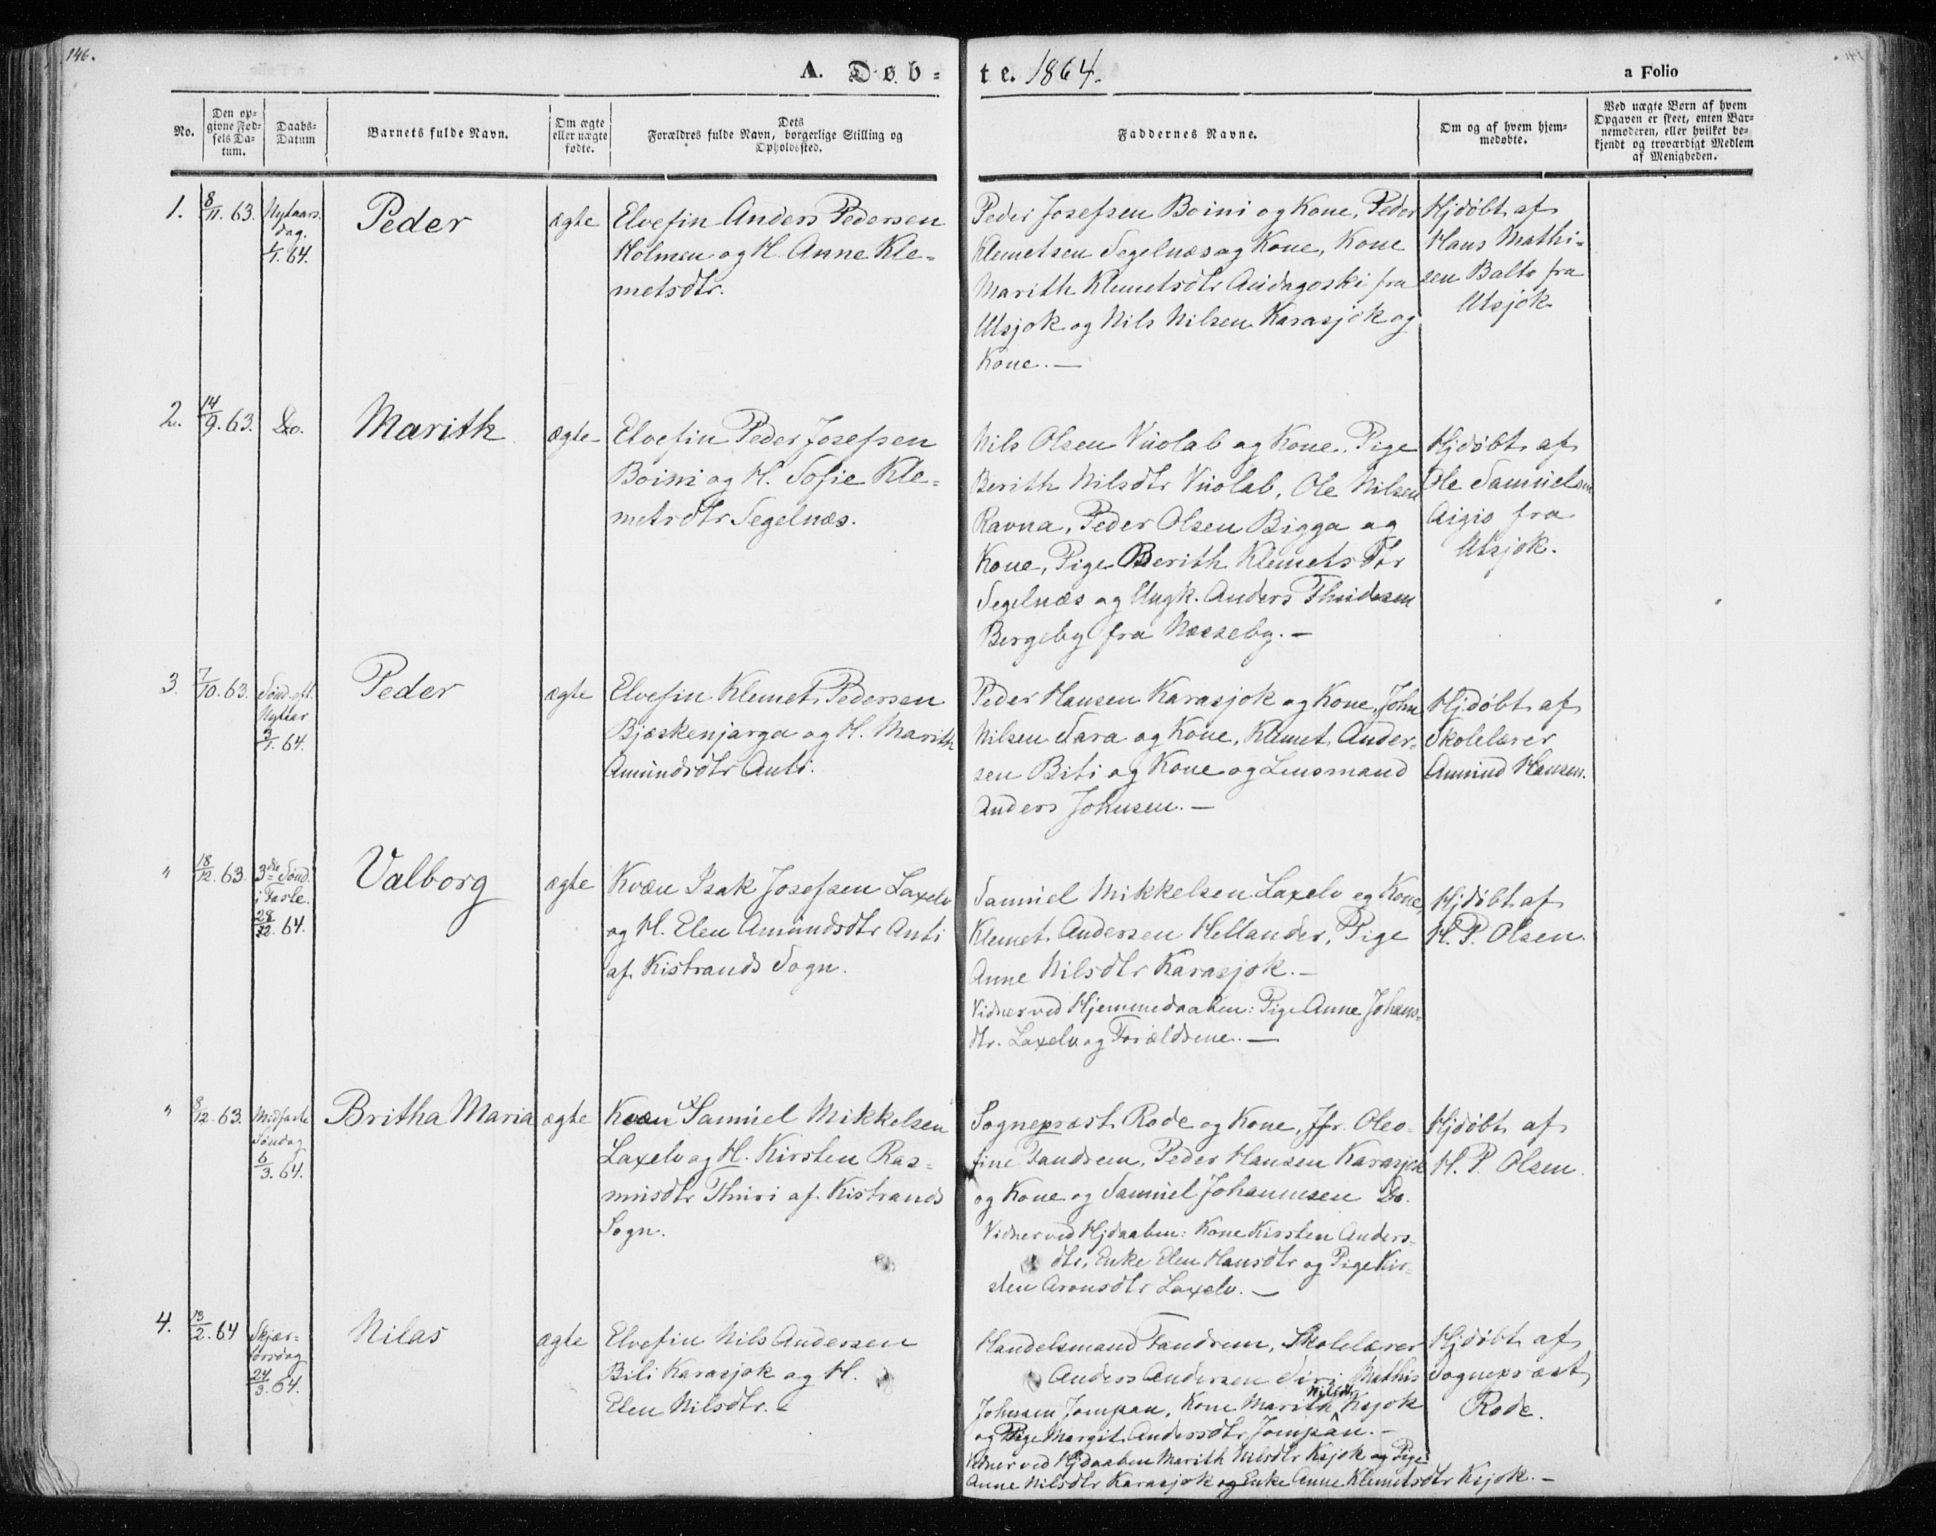 146.
A. Døb-
te. 1864.
a Folio
No.
Den op-
givne Fød-
sels Da-
tum.
Daabs-
Datum
Barnets fulde Navn.
Om ægte
eller uægte
fødte.
Dets
Forældres fulde Navn, borgerlige Stilling og
Opholdssted.
Faddernes Navne.
Om og af hvem hjem-
medøbte.
Ved uægte Børn af hvem
Opgaven er skeet, enten Bar-
nemoderen, eller hvilket be-
kjendt og troværdigt Medlem
af Menigheden.
1.
8/11. 63.
Nytaars
dag.
1/1. 64.
Peder
ægte
Elvefin Anders Pedersen
Holmen og H. Anne Kle-
metsdtr.
Peder Josefsen Boini og Kone, Peder
Klemetsen Segelnæs og Kone, Kone
Marith Klemetsdtr Auidagoski fra
Utsjok og Nils Nilsen Karasjok og
Kone. —
Hjdøbt af
Hans Mathi-
sen Balto fra
Utsjok
2.
14/9. 63.
Do.
Marith
ægte
Elvefin Peder Josefsen
Boini og H. Sofie Kle-
metsdtr Segelnæs.
Nils Olsen Vuolab og Kone, Pige
Berith Nilsdtr Vuolab, Ole Nilsen
Ravna, Peder Olsen Bigga og
Kone, Pige Berith Klemets Dtr
Segelnæs og Ungk. Anders Thudesen
Bergeby fra Næsseby. —
Hjdøbt af
Ole Samuelsen
Aigio fra
Utsjok.
3.
7/10. 63.
Sønd. eft.
Nytaar
3/1. 64.
Peder
ægte
Elvefin Klemet Pedersen
Bjæskenjarga og H. Marith
Amundsdtr Anti.
Peder Hansen Karasjok og Kone, John
Nilsen Sara og Kone, Klemet Ander-
sen Biti og Kone og Lensmand
Anders Johnsen. —
Hjdøbt af
Skolelærer
Amund Hansen.
"
18/12. 63.
3die Sønd.
i Faste.
28/2. 64.
Valborg
ægte
Kvæn Isak Josefsen Laxelv
og H. Elen Amundsdtr Anti
af Kistrands Sogn.
Samuel Mikkelsen Laxelv og Kone,
Klemet Andersen Hellander, Pige
Anne Nilsdtr Karasjok. —
Vidner ved Hjemmedaaben: Pige Anne Johans-
dtr. Laxelv og Forældrene. —
Hjdøbt af
H. P. Olsen.
"
8/12. 63.
Midfaste
Søndag
6/3. 64.
Britha Maria
ægte
Kvæn Samuel Mikkelsen
Laxelv og H. Kirsten Ras-
musdtr Thuri af Kistrands
Sogn.
Sognepræst Rode og Kone, Jfr. Oleo-
fine Fandrem, Peder Hansen Karasjok
og Kone og Samuel Johannesen Do.
Vidner ved Hjdaaben: Kone Kirsten Anders-
dtr, Enke Elen Hansdtr og Pige Kir-
sten Aronsdtr Laxelv. —
Hjdøbt af
H. P. Olsen.
4.
13/2. 64
Skjær-
torsdag
24/3. 64.
Nilas
ægte
Elvefin Nils Andersen
Biti Karasjok og H.
Elen Nilsdtr.
Handelsmand Fandrem, Skolelærer
Anders Andersen Siri, Mathis
Johnsen Jompan, Kone Marith Nilsdtr Ksjok
og Pige Margit Andersdtr Jompan. —
Vidner ved Hjdaaben Marith Nilsdtr Ksjok og Pige
Anne Nilsdtr Karasjok og Enke Anne Klemetsdtr Ksjok. —
Hjdøbt af
Sognepræst
Rode.